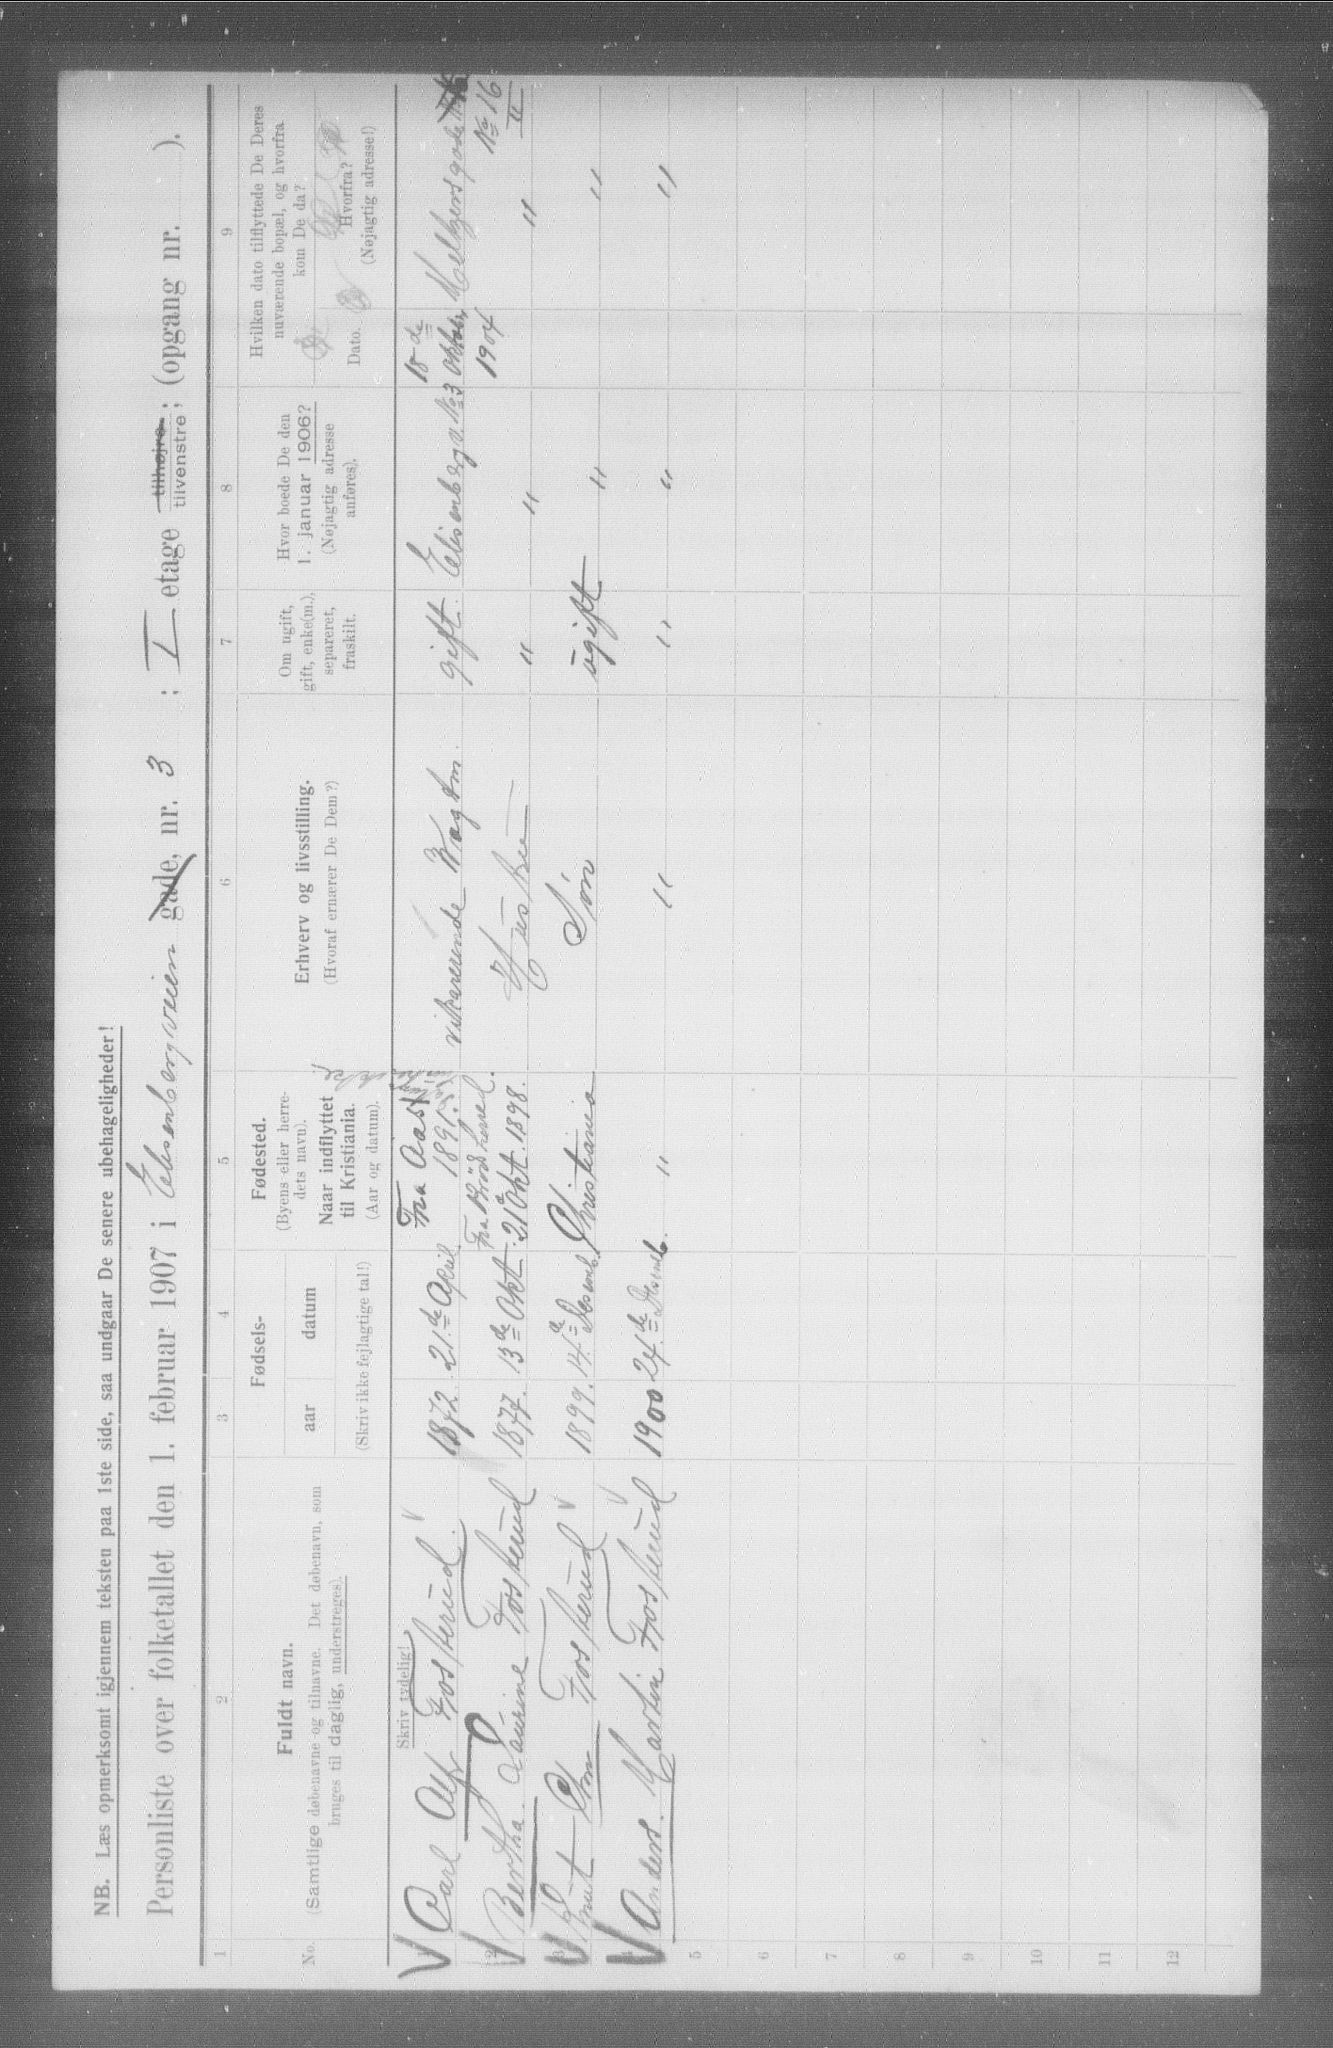 NB. Læs opmerksomt igjennem teksten paa 1ste side, saa undgaar De senere ubehageligheder!
Personliste over folketallet den 1. februar 1907 i Elisenbergveien gade, nr. 3 ; I etage tilhøjre tilvenstre; (opgang nr. ).
1 2 3 4 5 6 7 8 9
No. Fuldt navn. (Samtlige døbenavne og tilnavne. Det døbenavn, som bruges til daglig, understreges).
Skriv tydelig!
Fødsels- aar datum (Skriv ikke fejlagtige tal!)
Fødested. (Byens eller herredets navn). Naar indflyttet til Kristiania. (Aar og datum).
Erhverv og livsstilling. (Hvoraf ernærer De Dem?)
Om ugift, gift, enke(m.), separeret, fraskilt.
Hvor boede De den 1. januar 1906? (Nøjagtig adresse anføres).
Hvilken dato tilflyttede De Deres nuværende bopæl, og hvorfra kom De da?
Dato. Hvorfra? (Nøjagtig adresse!)
1 Carl Alf Fosserud. 1872 21de April Fra Aas 1891. vikarerende Vagtm. gift. Elisenbergv. No 3 18de Oktober 1904 Meltzersgade No 16 II
2 Bertha Laurine Fosserud 1877. 13de Okt. Fra herred. 21 Okt. 1898. Hustru " " "
3 Knut Fosserud 1899. 14de Desemb. Christiania Søn ugift " "
4 Anders Martin Fosserud 1900 24de Desemb. " " " " "
5
6
7
8
9
10
11
12